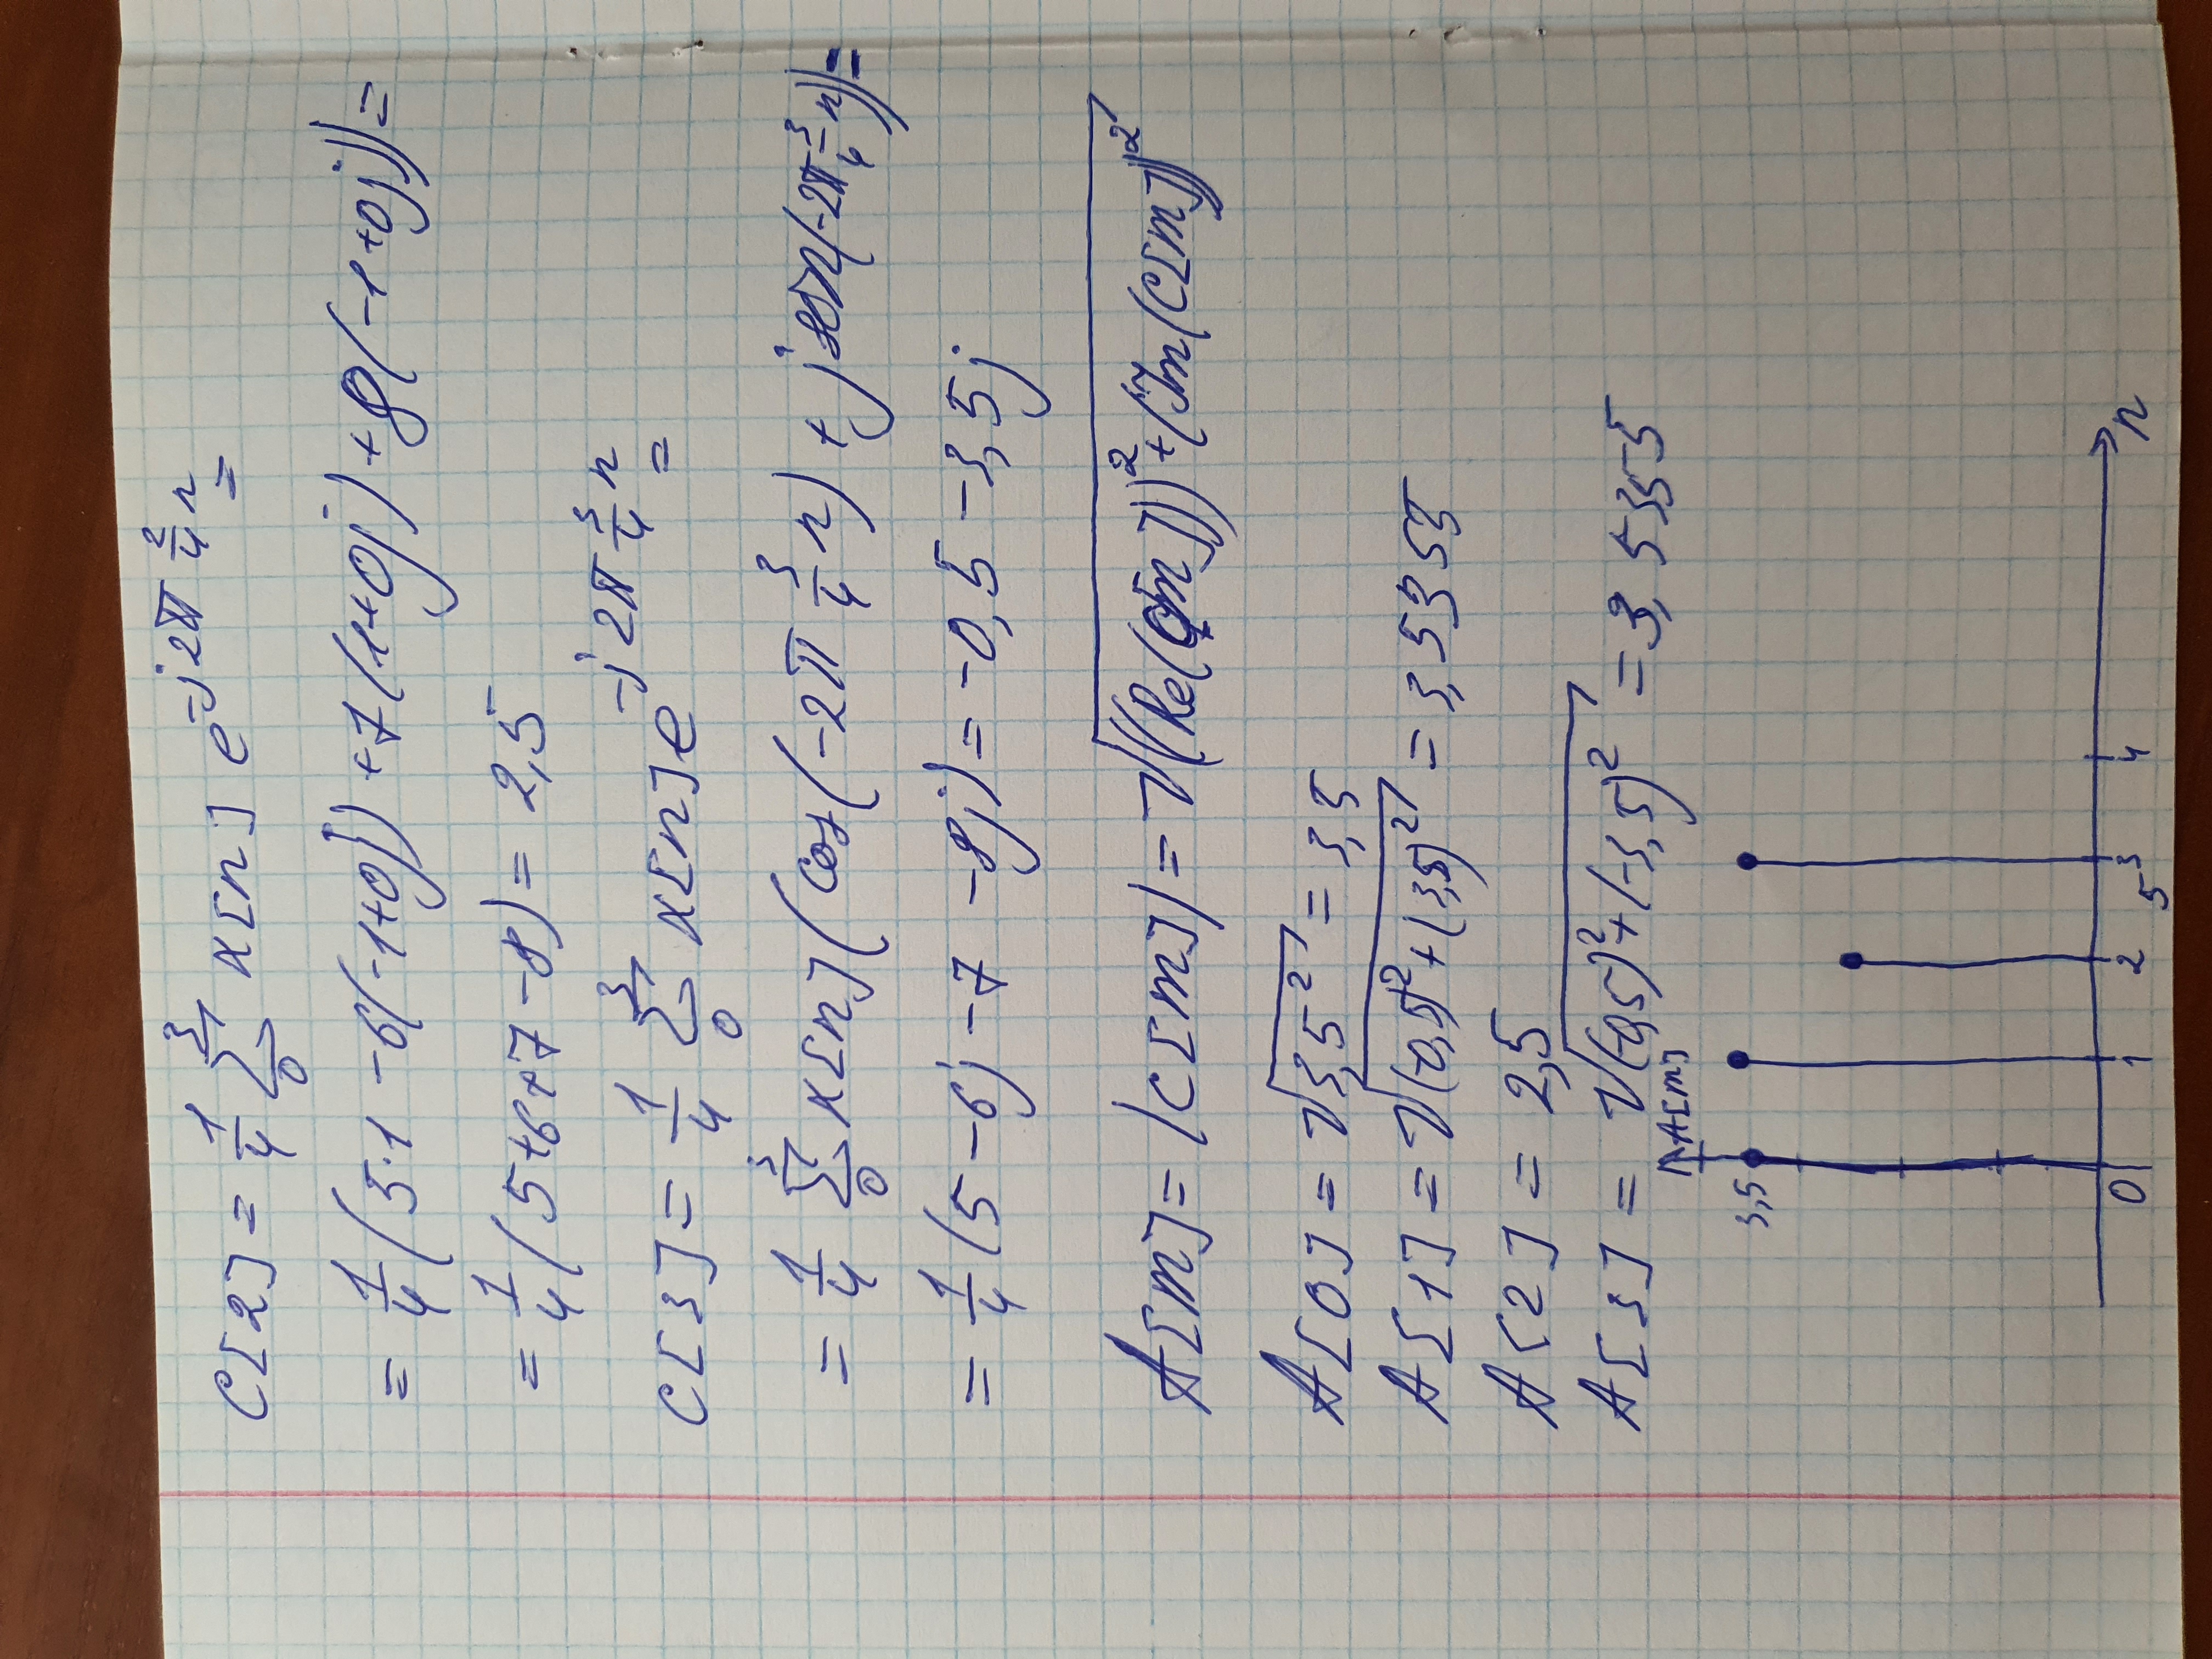 C[2] = 1/4 3∑0 x[n] e^(-j2π 2/4 n) =
= 1/4 (5·1 -6(-1+0j) +7(1+0j) +8(-1+0j)) =
= 1/4 (5+6+7-8) = 2,5
C[3] = 1/4 3∑0 x[n] e^(-j2π 3/4 n) =
= 1/4 3∑0 x[n] (cos(-2π 3/4 n) + j sin(-2π 3/4 n)) =
= 1/4 (5 -6j -7 -8j) = -0,5 -3,5j
A[m] = |C[m]| = √((Re(C[m]))² + (Im(C[m]))²
A[0] = √3,5² = 3,5
A[1] = √(-0,5)² + (3,5)² = 3,5355
A[2] = 2,5
A[3] = √(-0,5)² + (-3,5)² = 3,5355
A[m]
3,5
0 1 2 3 4 n
5